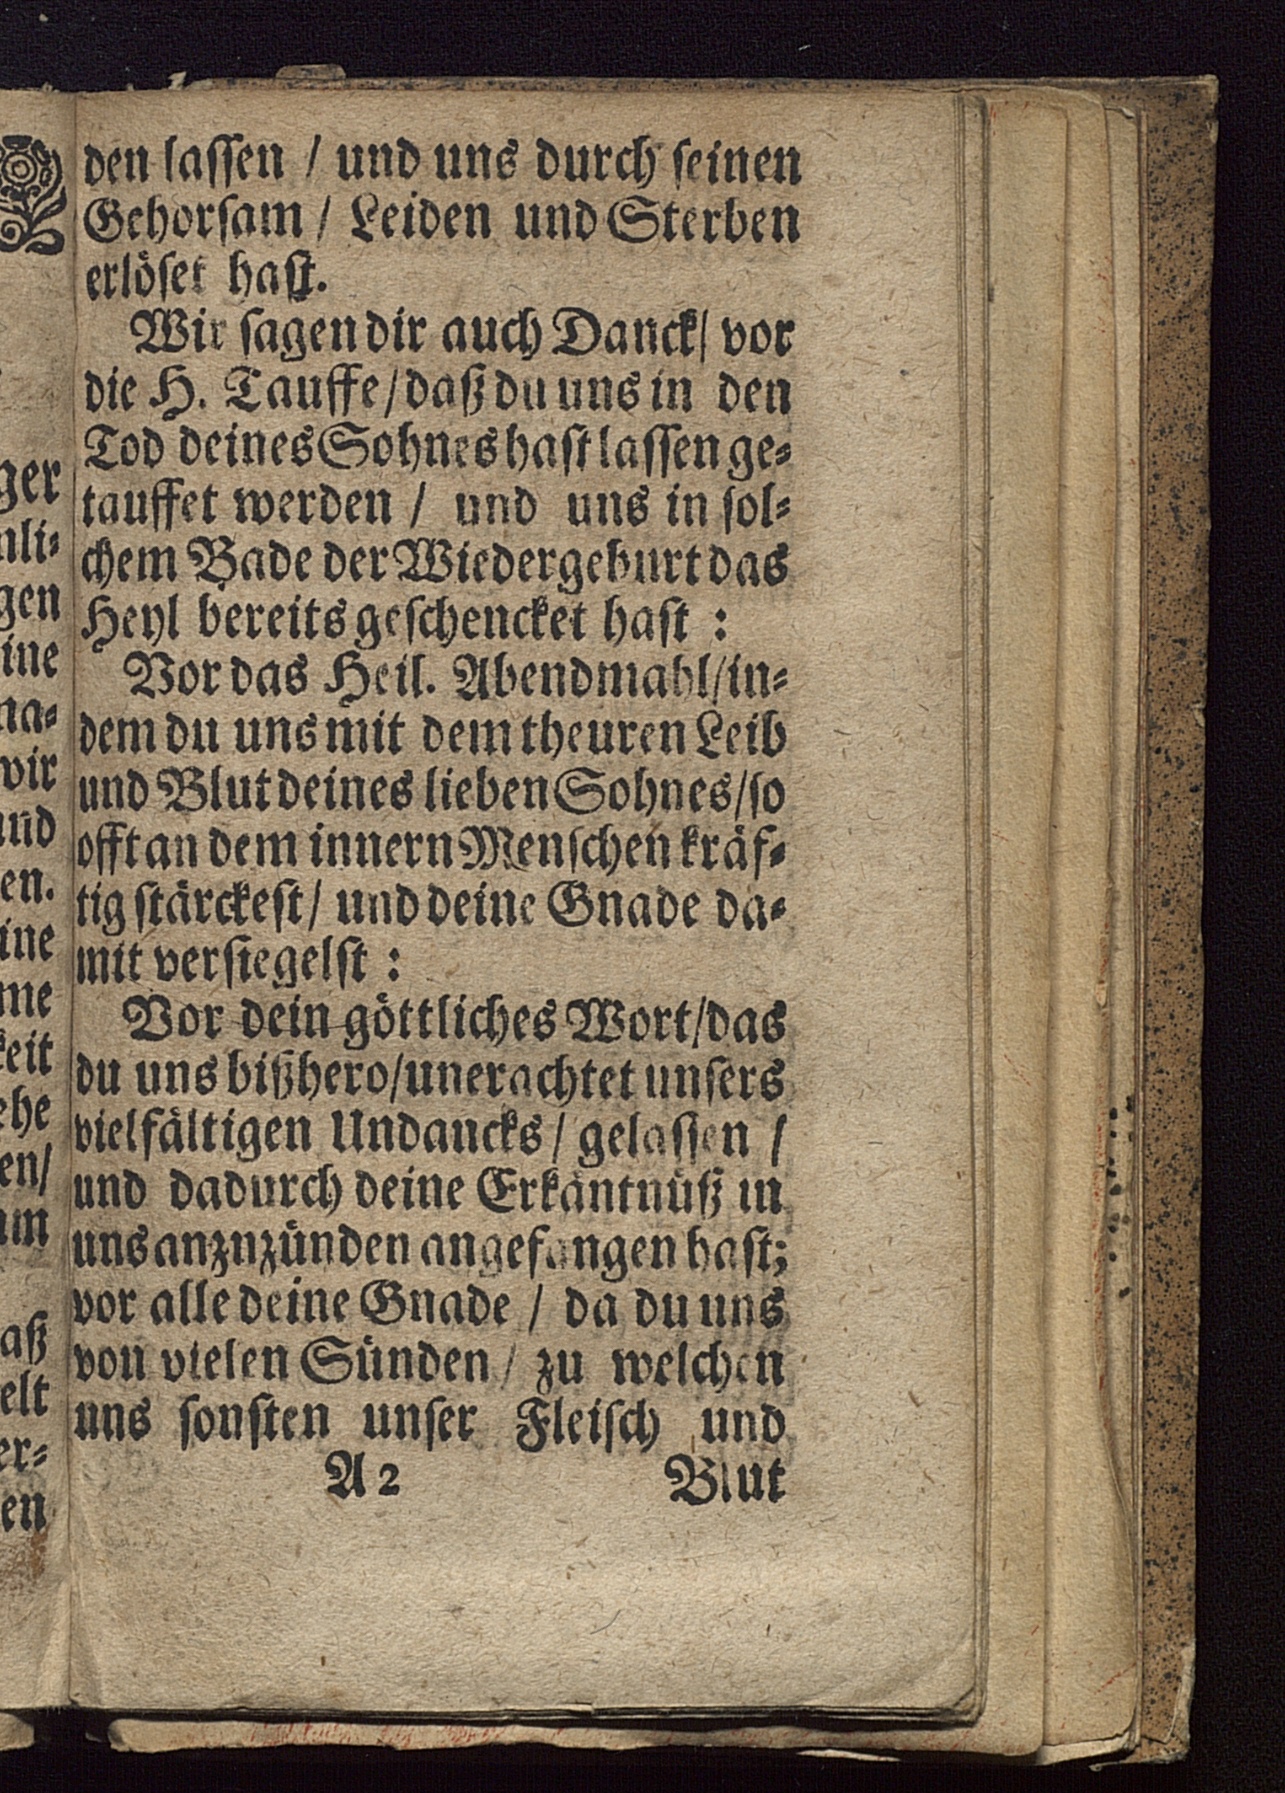 den laſſen / und uns durch ſeinen
Gehorſam / Leiden und Sterben
erlöſet haſt.
Wir ſagen dir auch Danck / vor
die H. Tauffe / daß du uns in den
Tod deines Sohnes haſt laſſen ge⸗
tauffet werden / und uns in ſol⸗
chem Bade der Wiedergeburt das
Heyl bereits geſchencket haſt :
Vor das Heil. Abendmahl / in⸗
dem du uns mit dem theuren Leib
und Blut deines lieben Sohnes / ſo
offt an dem innern Menſchen kräf⸗
tig ſtärckeſt / und deine Gnade da⸗
mit verſiegelſt :
Vor dein göttliches Wort / das
du uns bißhero / unerachtet unſers
vielfältigen Undancks / gelaſſen /
und dadurch deine Erkäntnüß in
uns anznzünden angefangen haſt;
vor alle deine Gnade / da du uns
von vielen Sünden / zu welchen
uns ſonſten unſer Fleiſch und
A 2 Blut